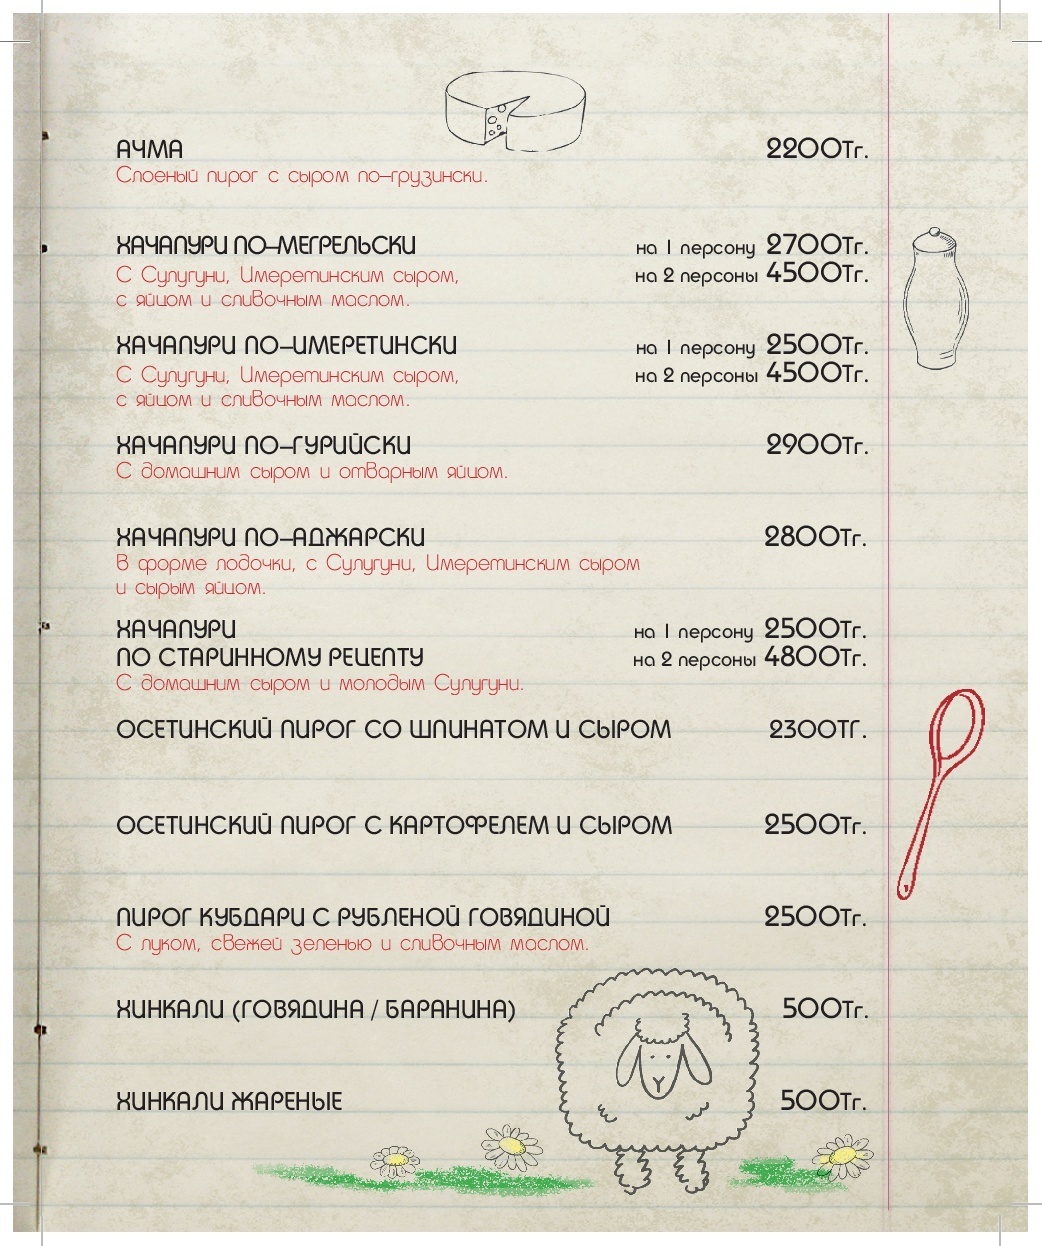 АЧМА 2200Тг.
Слоеный пирог с сыром по-грузински.
ХАЧАПУРИ ПО-МЕГРЕЛЬСКИ на 1 персону 2700Тг.
С Сулугуни, Имеретинским сыром, на 2 персоны 4500Тг.
с яйцом и сливочным маслом.
ХАЧАПУРИ ПО-ИМЕРЕТИНСКИ на 1 персону 2500Тг.
С Сулугуни, Имеретинским сыром, на 2 персоны 4500Тг.
с яйцом и сливочным маслом.
ХАЧАПУРИ ПО-ГУРИЙСКИ 2900Тг.
С домашним сыром и отварным яйцом.
ХАЧАПУРИ ПО-АДЖАРСКИ 2800Тг.
В форме лодочки, с Сулугуни, Имеретинским сыром
и сырым яйцом.
ХАЧАПУРИ на 1 персону 2500Тг.
ПО СТАРИННОМУ РЕЦЕПТУ на 2 персоны 4800Тг.
С домашним сыром и молодым Сулугуни.
ОСЕТИНСКИЙ ПИРОГ СО ШПИНАТОМ И СЫРОМ 2300ТГ.
ОСЕТИНСКИЙ ПИРОГ С КАРТОФЕЛЕМ И СЫРОМ 2500Тг.
ПИРОГ КУБДАРИ С РУБЛЕНОЙ ГОВЯДИНОЙ 2500Тг.
С луком, свежей зеленью и сливочным маслом.
ХИНКАЛИ (ГОВЯДИНА / БАРАНИНА) 500Тг.
ХИНКАЛИ ЖАРЕНЫЕ 500Тг.